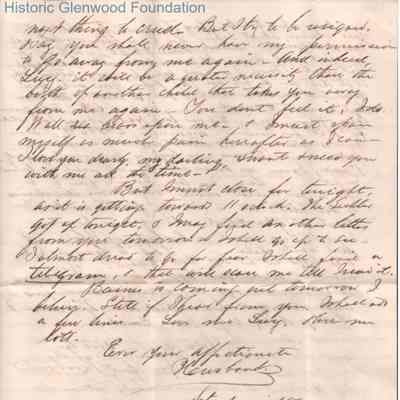 Historic Glenwood Foundation
next thing to cruel. But I try to be resigned.
you shall never have my permission
to go away from me again - and indeed,
Lucy, it will be a greater necessity than the
birth of another child that takes you away
from me again. You don't feel it, I do.
upon me. I must spare
myself as much pain hereafter as I can -
I love you dearly, my darling, & want & need you
with me all the time -
But I must close for tonight,
as it is getting towards 11 o'clock. The letter
got tonight, & I may find another letter
from you tomorrow. I shall go up & see.
I almost dread to go for fear I shall find a
telegram, & that will scare me till I read it.
is coming out tomorrow I
believe. Still if I hear from you I shall add
a few lines - Love me, Lucy,
lots.
Ever Your affectionate
Husband